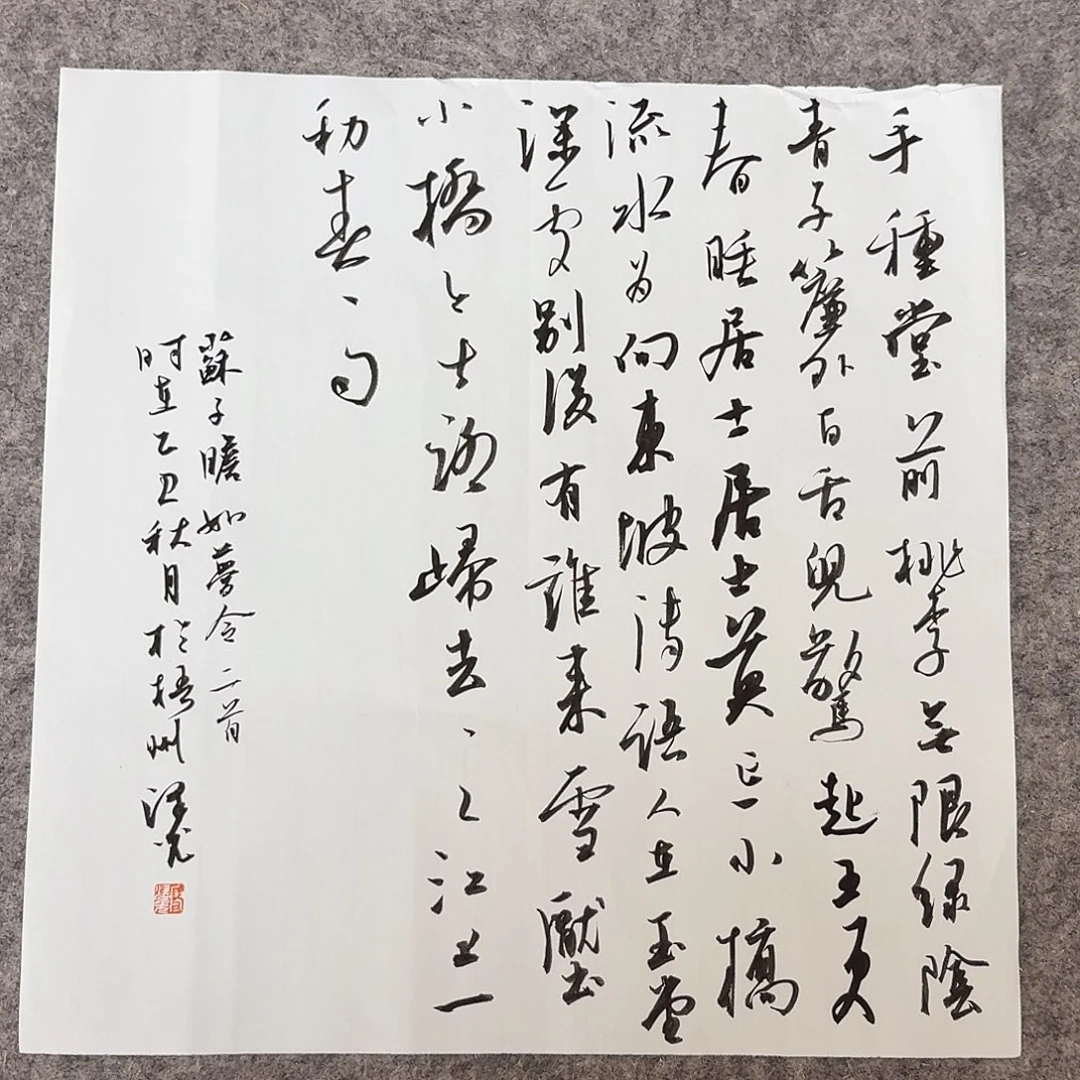 手種堂前桃李無限綠陰
青子簾外百舌兒驚起五更
春睡居士居士莫忘小橋
流水為向東坡傳語人在玉堂
深處別後有誰來雪壓
小橋無路歸去〻〻江上一
犁春雨
蘇子瞻如夢令二首
時在乙丑秋月於梧州